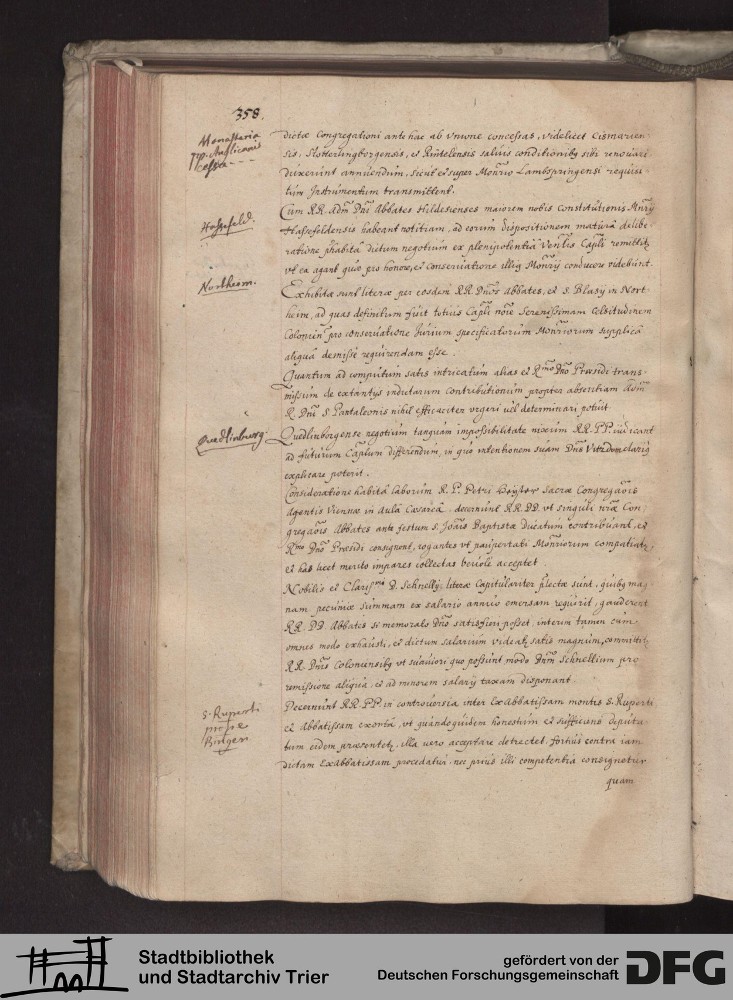 358.
Monasteria
pp. Anglicanis
cessa
dictæ Congregationi ante hac ab Vnione concessas, videlicet Cismarien-
sis, Slotterlingborgensis, et Rintelensis salvis conditionibꝫ sibi renovari
duxerunt annuendum, sicut et super Monrio Lambspringensi requisi-
tum Instrumentum transmittent.
Hassefeld.
Cum RR. adm̄ Dn̄i Abbates Hildesienses maiorem nobis constitutionis Mnr̄ij
Hassefeldensis habeant notitiam, ad eorum dispositionem maturâ delibe-
ratione p̄habitâ dictum negotium ex plenipotentiâ Venlis Capl̄i remittitꝫ
vt ea agant quæ pro honore, et conservatione illiꝫ Mon̄rij conducere videbunt.
Northeim.
Exhibitæ sunt literæ per eosdem RR. Dnōs Abbates, et S. Blasij in Nort-
heim, ad quas definitum fuit totius Capl̄i noīe Serenissimam Celsitudinem
Colonien̄ pro conservatione Jurium specificatorum Monr̄iorum supplicâ
aliquâ demisse requirendam esse.
Quantum ad computum satis intricatum alias et Rm̄o Dn̄o Præsidi trans-
missum de extantijs indictarum contributionum propter absentiam Adm̄
R. Dn̄i S. Pantaleonis nihil efficaciter vrgeri uel determinari potuit
Quedlinburg.
Quedlinborgense negotium tanquam impossibilitate nixum RR. PP. iudicant
ad futurum Capl̄um differendum, in quo intentionem suam Dn̄s Vitzdomelarius
explicare poterit.
Consideratione habitâ laborum R. P. Petri Heyster Sacræ Congregaōis
Agentis Viennæ in Aulâ Cæsareâ decernunt RR. DD. vt singuli nr̄æ Con-
gregaōis Abbates ante festum S. Joān̄is Baptistæ Ducatum contribuant, et
Rm̄o Dn̄o Præsidi consignent, rogantes vt paupertati Monr̄iorum compatiatꝫ
et has licet merito impares collectas beuole acceptet
Nobilis et Clariss̄mi D. Schnellij literæ Capitulariter p̄lectæ sunt, quibꝫ mag-
nam pecuniæ summam ex salario annuo emersam requirit, gauderent
RR. DD. Abbates si memorato Dn̄o satisfieri posset, interim tamen cum
omnes modo exhausti, et dictum salarium videatꝫ satis magnum, committitꝫ
RR. Dn̄is Coloniensibꝫ vt suauiori quo possunt modo Dn̄m Schnellium pro
remissione aliquâ, et ad minorem salarij taxam disponant.
S. Ruperti
prope
Bingen
Decernunt RR. PP. in controversia inter ExAbbatissam montis S. Ruperti
et Abbatissam exortâ, vt quandoquidem honestum et sufficiens deputa-
tum eidem præsentetꝫ, illa vero acceptare detrectet, fortius contra iam
dictam ExAbbatissam procedatur, nec prius illi competentia consignetur
quam
Stadtbibliothek
und Stadtarchiv Trier
gefördert von der
Deutschen Forschungsgemeinschaft
DFG